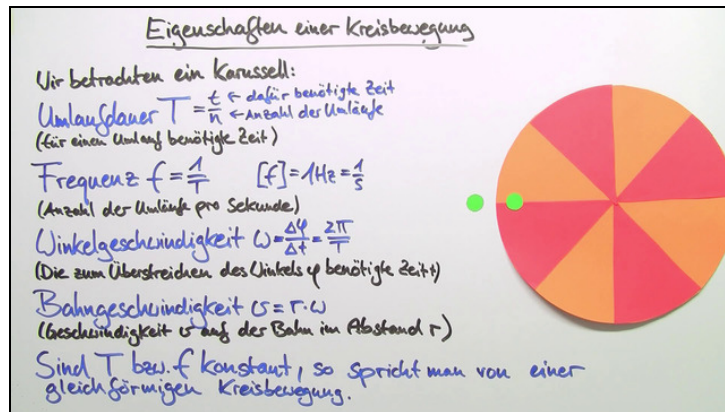 Eigenschaften einer Kreisbewegung
Wir betrachten ein Karussell:
Umlaufdauer T = t/n ← dafür benötigte Zeit ← Anzahl der Umläufe
(für einen Umlauf benötigte Zeit)
Frequenz f = 1/T [f] = 1Hz = 1/s
(Anzahl der Umläufe pro Sekunde)
Winkelgeschwindigkeit ω = Δφ/Δt = 2π/T
(Die zum Überstreichen des Winkels φ benötigte Zeit t)
Bahngeschwindigkeit v = r · ω
(Geschwindigkeit v auf der Bahn im Abstand r)
Sind T bzw. f konstant, so spricht man von einer
gleichförmigen Kreisbewegung.